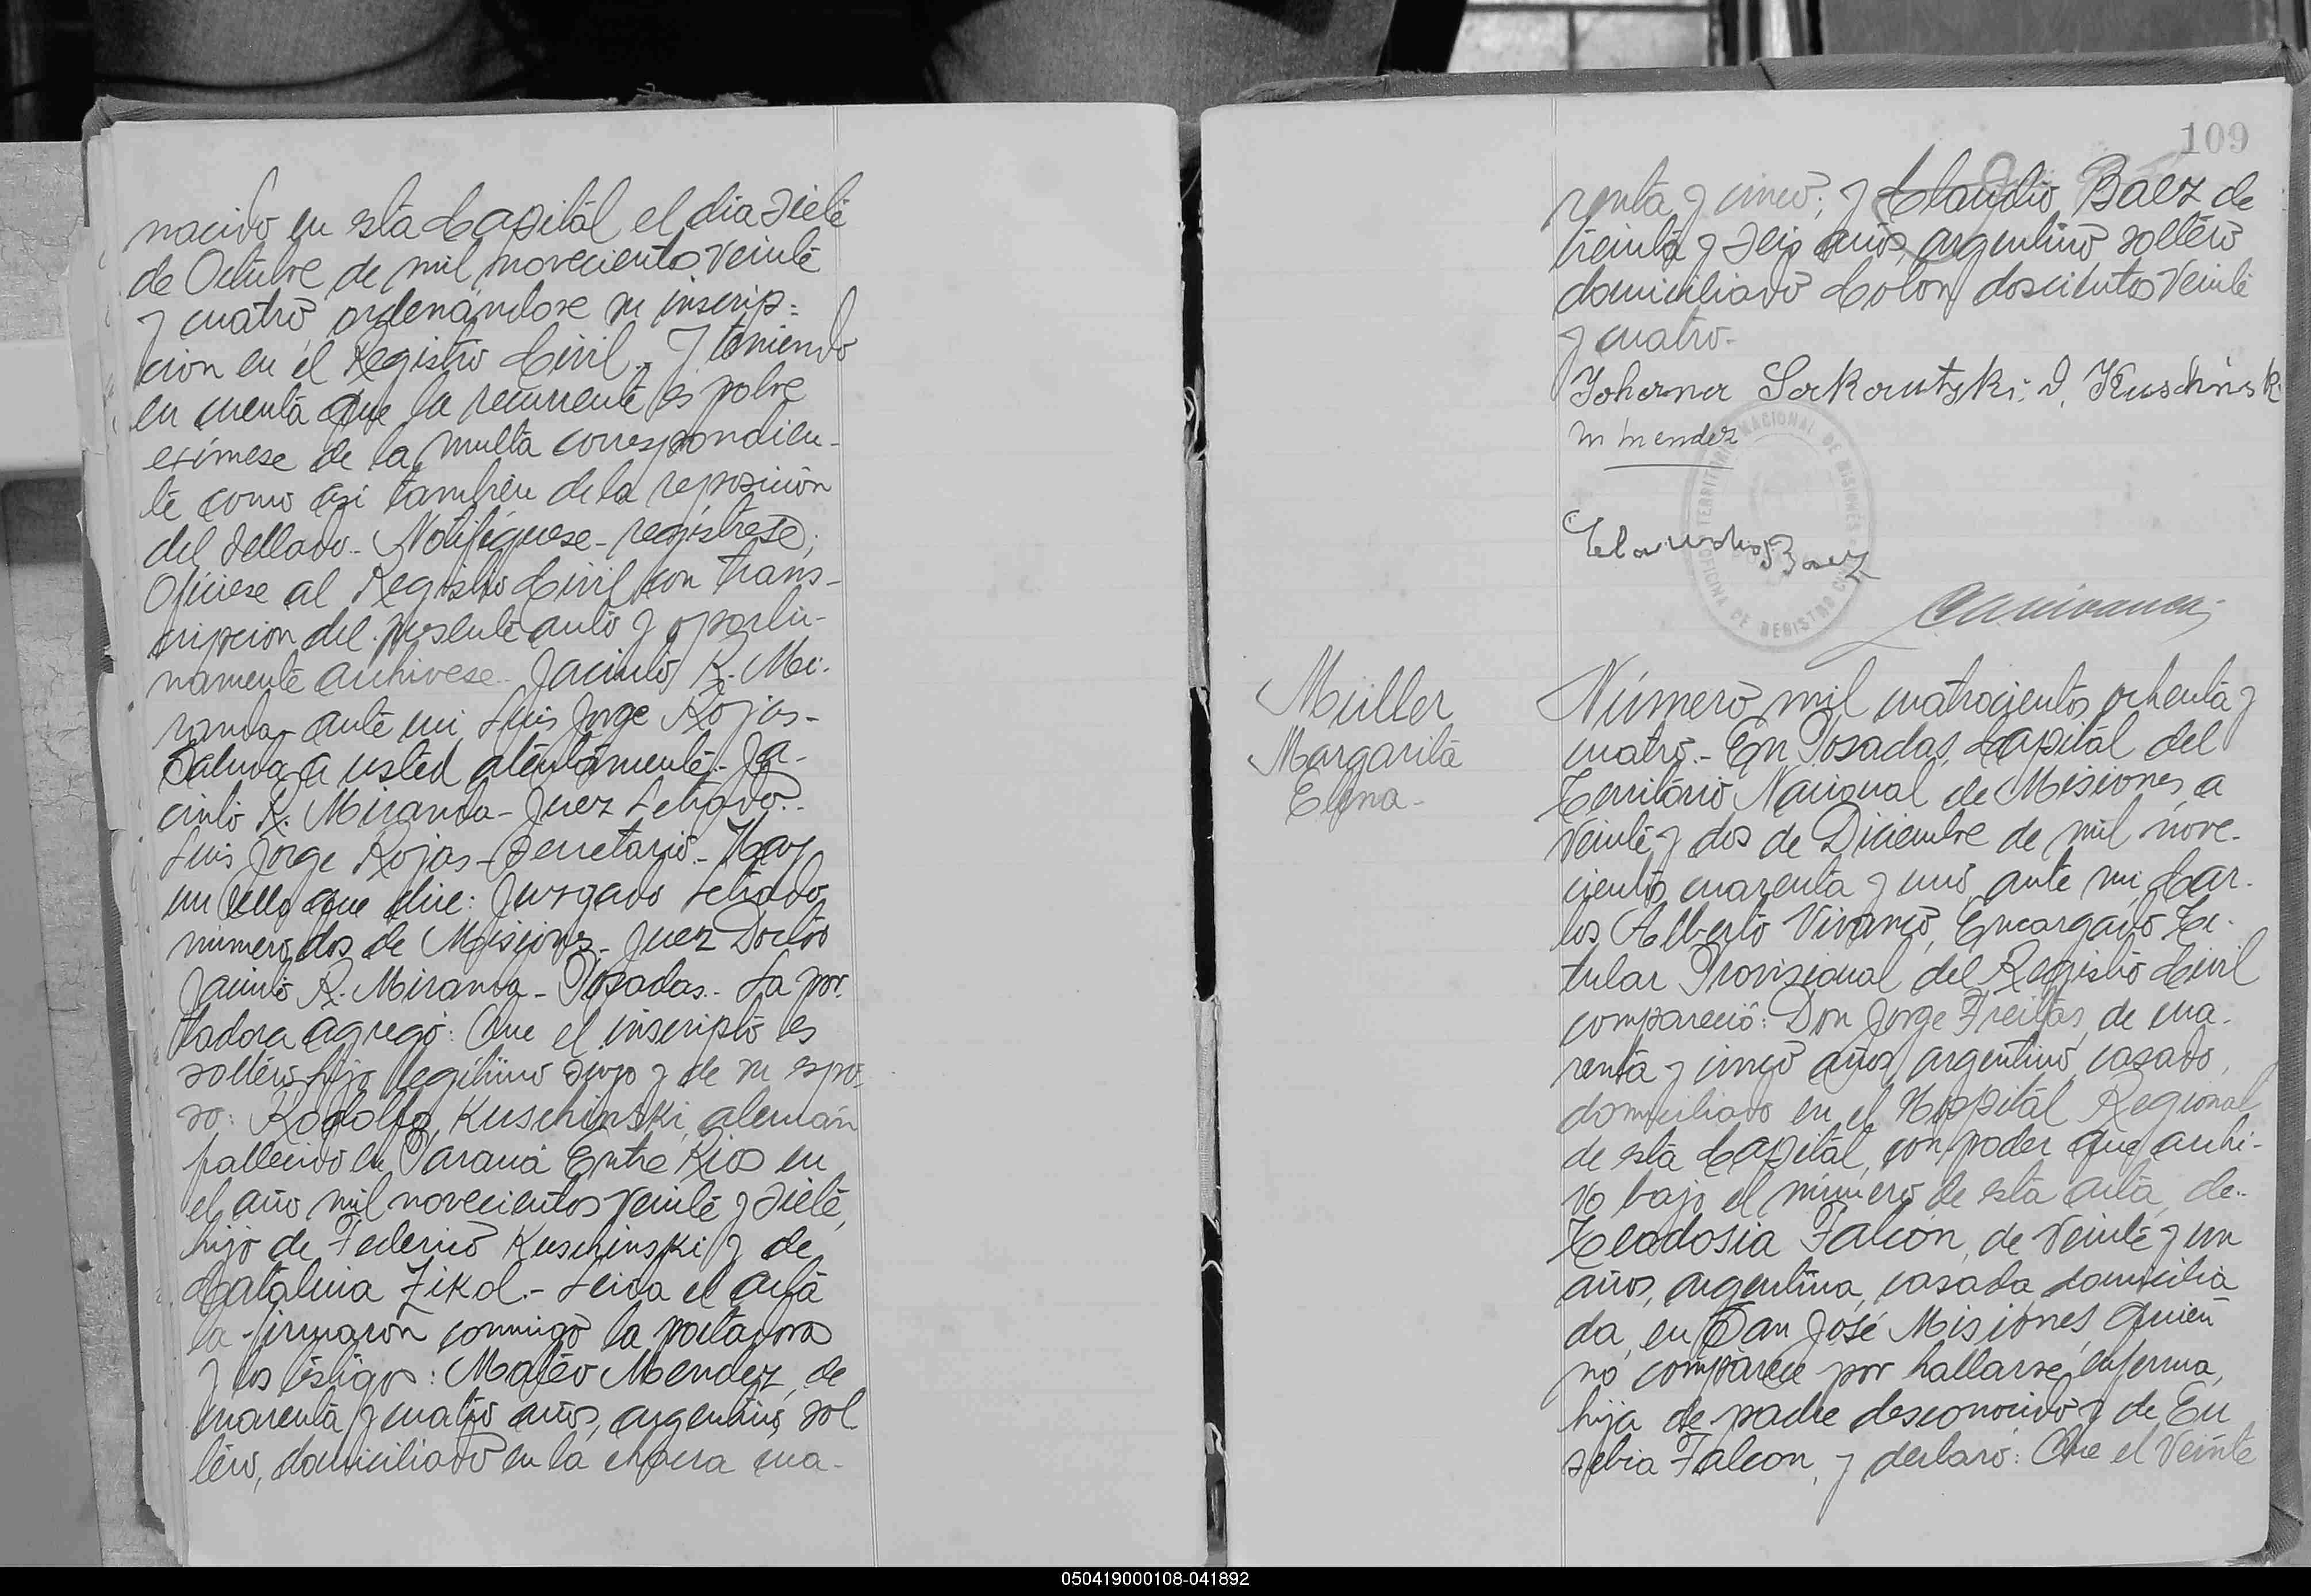 nacido en esta Capital el dia siete
de Octubre de mil novecientos veinte
y cuatro, ordenándose su inscrip=
cion en el Registro Civil. Y teniendo
en cuenta que la recurrente es pobre
exímese de la multa correspondien-
te como asi tambien de la reposición
del sellado.- Notifíquese- regístrese;
Ofíciese al Registro Civil con trans-
cripcion del presente auto y oportu-
namente archivese. Jacinto R. Mi-
randa- ante mi Luis Jorge Rojas-
Saluda a usted atentamente.- Ja-
cinto R. Miranda- Juez Letrado.-
Luis Jorge Rojas- Secretario.- Hay
un sello que dice: Juzgado Letrado
número dos de Misiones- Juez Doctor
Jacinto R. Miranda- Posadas.- La por-
tadora agregó: Que el inscripto es
soltero hijo legítimo suyo y de su espo-
so: Rodolfo Kuschinski, alemán
fallecido en Paraná Entre Rios en
el año mil novecientos veinte y siete,
hijo de Federico Kuschinski y de
Catalina Zikol.- Leida el acta
la firmaron conmigo la portadora
y los testigos: Mateo Mendez, de
cuarenta y cuatro años, argentino, sol
tero, domiciliado en la chacra cua-
109
renta y cinco; y Claudio Baez de
treinta y seis años, argentino soltero
domiciliado Colon doscientos veinte
y cuatro.-
Johanna Sakautzki. D. Kuschinski
M Mendez
TERRITORIO NACIONAL DE MISIONES
OFICINA DE REGISTRO CIVIL
Claudio Baez
Müller
Margarita
Elena-
Número mil cuatrocientos ochenta y
cuatro.- En Posadas, Capital del
Territorio Nacional de Misiones, a
veinte y dos de Diciembre de mil nove-
cientos cuarenta y uno, ante mi, Car-
los Alberto Vivanco, Encargado Ti-
tular Provisional del Registro Civil
compareció: Don Jorge Freitas, de cua-
renta y cinco años, argentino, casado,
domiciliado en el Hospital Regional
de esta Capital, con poder que archi-
vo bajo el número de esta acta, de-
Teodosia Falcon, de veinte y un
años, argentina, casada domicilia
da, en San José Misiones, quien
no comparece por hallarse enferma,
hija de padre desconocido y de Eu
sebia Falcon, y declaró: Que el veinte
050419000108-041892